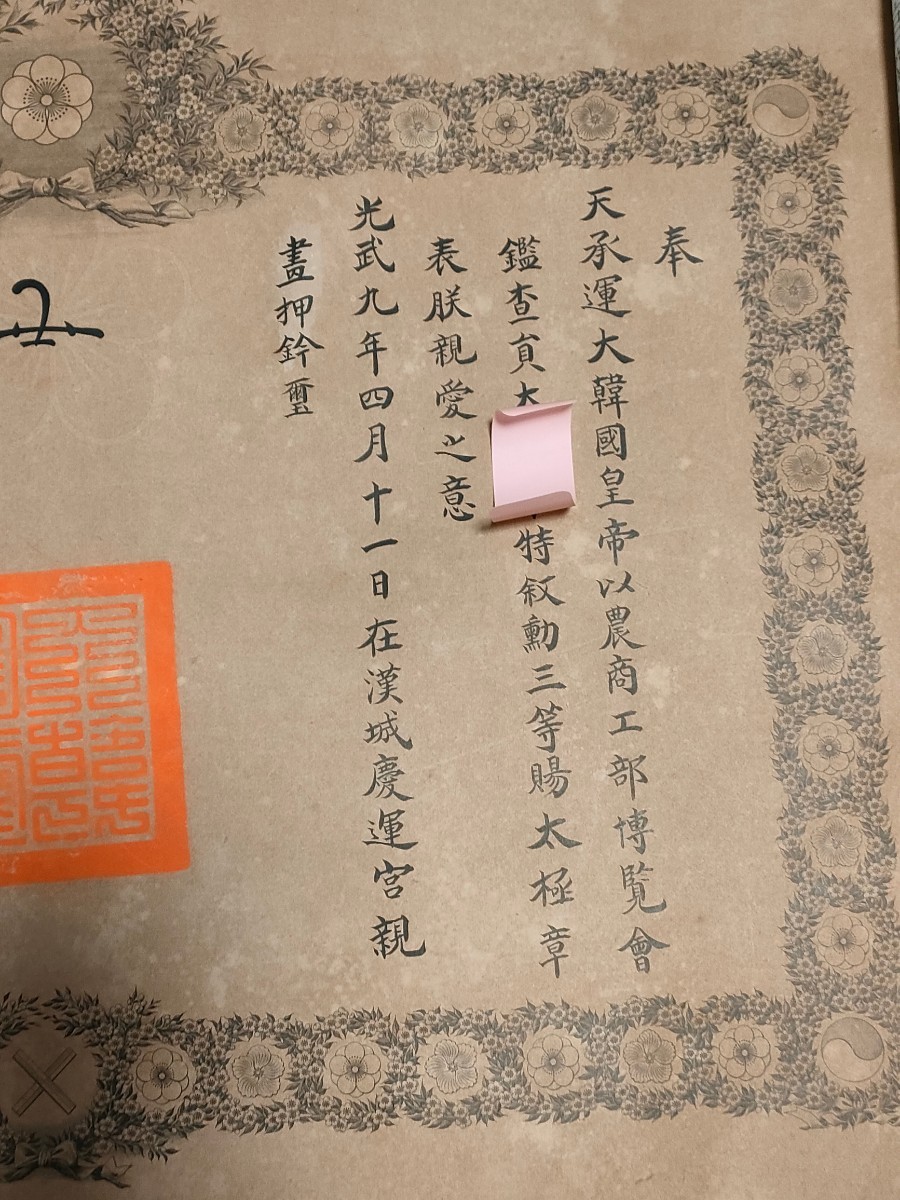 奉
天承運大韓國皇帝以農商工部博覽會
鑑查員
特敍勳三等賜太極章
表朕親愛之意
光武九年四月十一日在漢城慶運宮親
畫押鈐璽